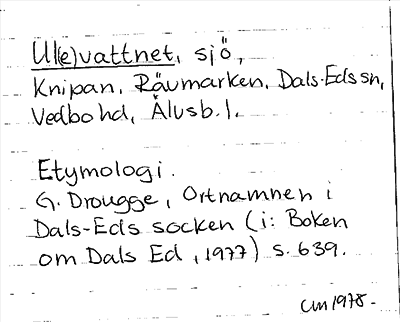 Ul(e)vattnet, sjö,
Knipan, Rävmarken, Dals-Eds sn,
Vedbo hd, Älvsb. l.
Etymologi.
G. Drougge, Ortnamnen i
Dals-Eds socken (i: Boken
om Dals Ed, 1977) s. 639.
1978.